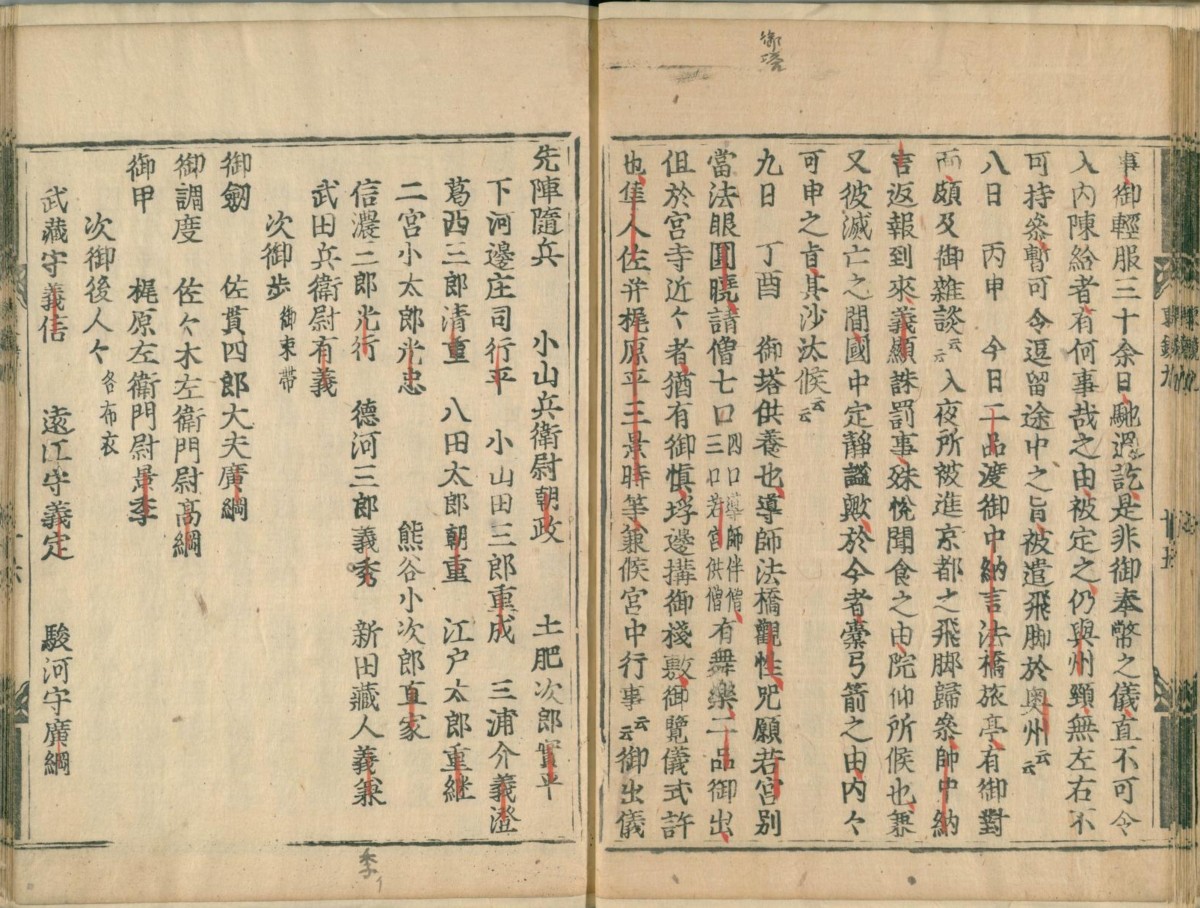 御塔
事御輕服三十余日馳過訖是非御奉幣之儀直不可令
入内陳給者有何事哉之由被定之仍與州頸無左右不
可持参暫可令逗留途中之旨被遣飛脚於奥州云云
八日 丙申 今日二品渡御中納言法橋旅亭有御對
面頗及御雜談云云入夜所被進京都之飛脚歸參帥中納
言返報到來義顯誅罰事殊悅聞食之由院仰所候也兼
又彼滅亡之間國中定靜謐歟於今者橐弓箭之由内々
可申之旨其沙汰候云云
九日 丁酉 御塔供養也導師法橋觀性咒願若宮別
當法眼圓曉請僧七口四口導師伴僧三口若宮供僧有舞樂二品御出
但於宮寺近々者猶有御愼埒邊搆御棧敷御覽儀式許
也隼人佐并梶原平三景時等兼候宮中行事云云御出儀
先陣隨兵 小山兵衛尉朝政 土肥次郎實平
下河邊庄司行平 小山田三郎重成 三浦介義澄
葛西三郎清重 八田太郎朝重 江戸太郎重継
二宮小太郎光忠 熊谷小次郎直家
信濃二郎光行 德河三郎義秀 新田藏人義兼
武田兵衛尉有義
次御歩御束帶
御劔 佐貫四郎大夫廣綱
御調度 佐々木左衛門尉髙綱
御甲 梶原左衛門尉景季
次御後人々各布衣
武藏守義信 遠江守義定 駿河守廣綱
季